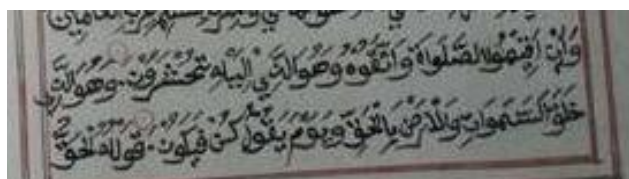 لنسلم لرب العالمين
وَأَنْ أَقِيمُوا الصَّلَوٰةَ وَاتَّقُوهُ وَهُوَ الَّذِي إِلَيْهِ تُحْشَرُونَ وَهُوَ الَّذِي
خَلَقَ السَّمَوَاتِ وَالْأَرْضَ بِالْحَقِّ وَيَوْمَ يَقُولُ كُنْ فَيَكُونُ قَوْلُهُ الْحَقُّ